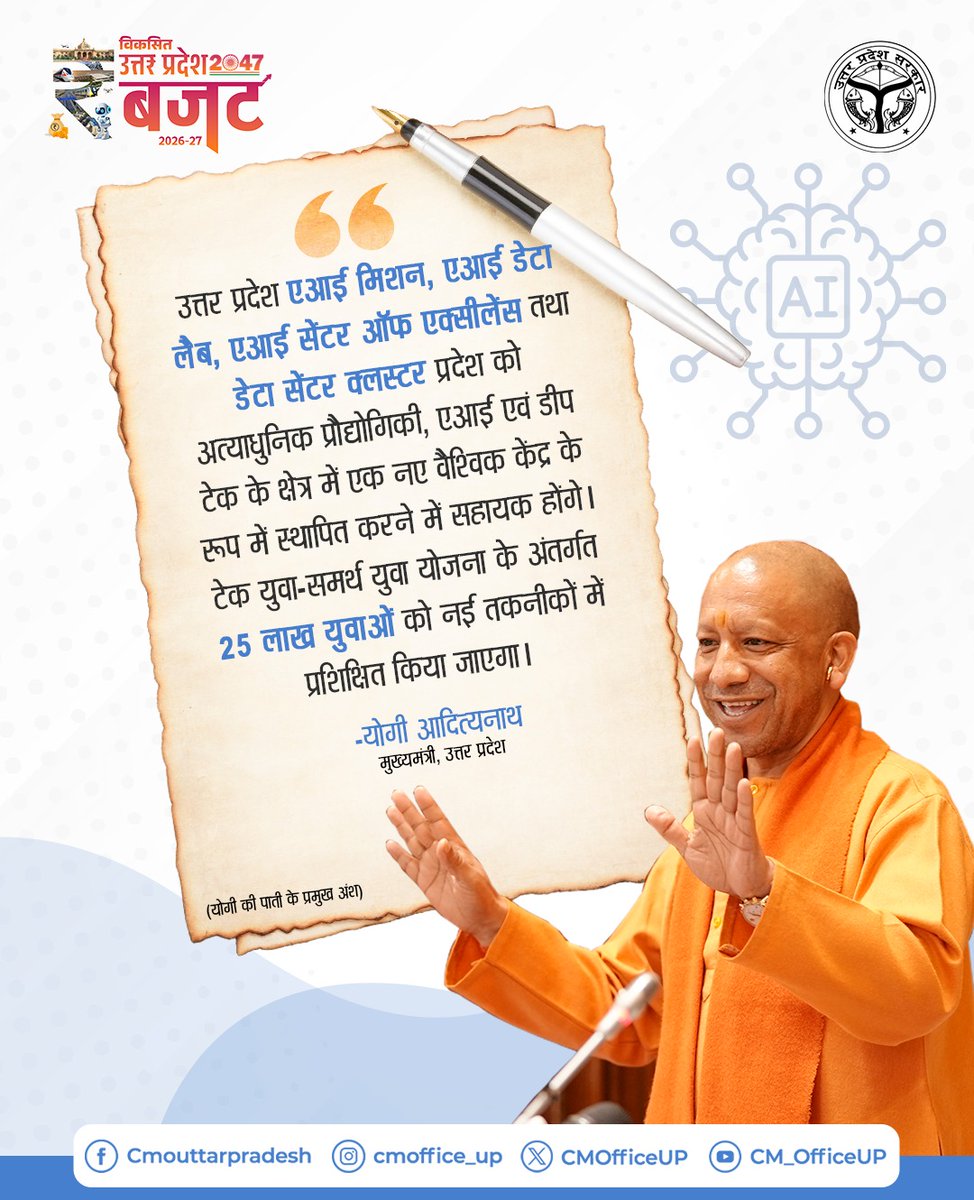 विकसित
उत्तर प्रदेश 2047
बजट
2026-27
उत्तर प्रदेश सरकार
उत्तर प्रदेश एआई मिशन, एआई डेटा
लैब, एआई सेंटर ऑफ एक्सीलेंस तथा
डेटा सेंटर क्लस्टर प्रदेश को
अत्याधुनिक प्रौद्योगिकी, एआई एवं डीप
टेक के क्षेत्र में एक नए वैश्विक केंद्र के
रूप में स्थापित करने में सहायक होंगे।
टेक युवा-समर्थ युवा योजना के अंतर्गत
25 लाख युवाओं को नई तकनीकों में
प्रशिक्षित किया जाएगा।
-योगी आदित्यनाथ
मुख्यमंत्री, उत्तर प्रदेश
(योगी की पाती के प्रमुख अंश)
AI
Cmouttarpradesh cmoffice_up CMOfficeUP CM_OfficeUP